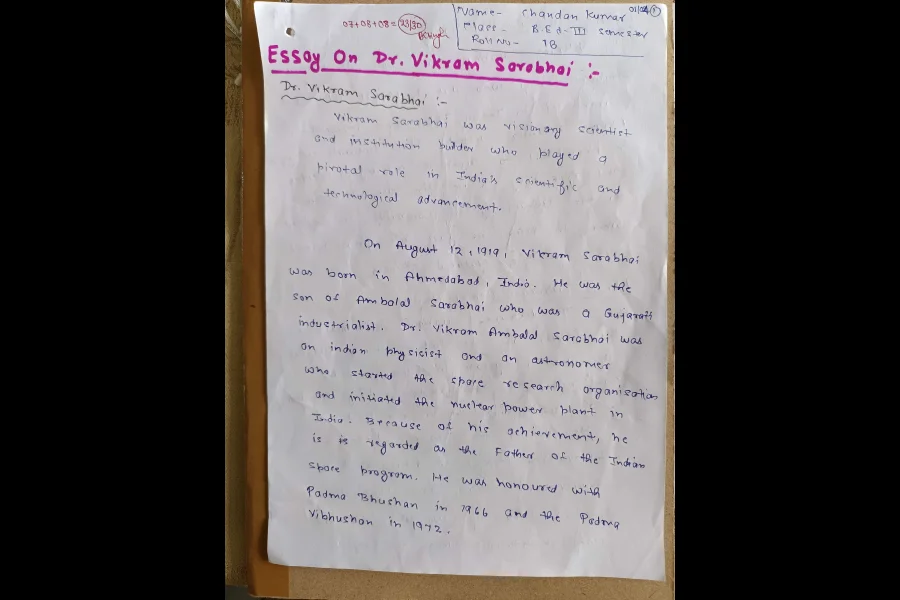 07+08+08=23/30
Name- Chandan Kumar
Class- B.Ed-III semester
Roll No- 18
Essay On Dr. Vikram Sarabhai :-
Dr. Vikram Sarabhai :-
Vikram Sarabhai was visionary scientist
and institution builder who played a
pivotal role in India's scientific and
technological advancement.
On August 12, 1919, Vikram Sarabhai
was born in Ahmedabad, India. He was the
son of Ambalal Sarabhai who was a Gujarati
industrialist. Dr. Vikram Ambalal Sarabhai was
an indian physicist and an astronomer
who started the space research organisation
and initiated the nuclear power plant in
India. Because of his achievement, he
is is regarded as the Father of the Indian
space program. He was honoured with
Padma Bhushan in 1966 and the Padma
Vibhushan in 1972.